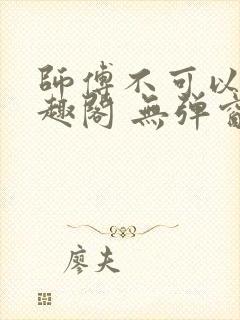 師傅不可以
趣閣 無弹窗
廖夫